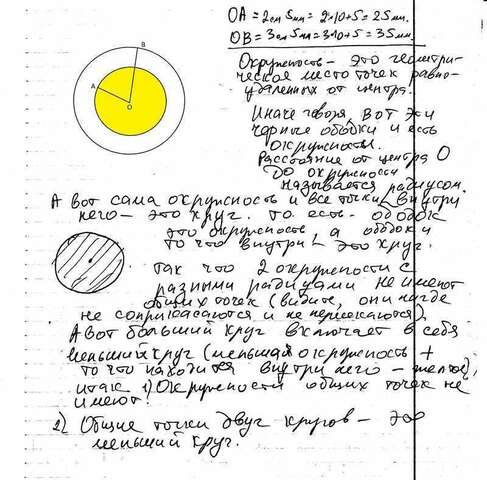 OA = 2см 5мм = 2*10+5 = 25мм.
OB = 3см 5мм = 3*10+5 = 35мм.
B
A
O
Окружность - это геометри-
ческое место точек равно-
удаленных от центра.
Иначе говоря, вот эти
черные ободки и есть
окружности.
Расстояние от центра О
до окружности
называется радиусом.
А вот сама окружность и все точки внутри
него - это круг. то есть - ободок
это окружность, а ободок и
то что внутри - это круг.
так что 2 окружности с
разными радиусами не имеют
общих точек (видите, они нигде
не соприкасаются и не пересекаются).
А вот больший круг включает в себя
меньший круг (меньшая окружность +
то что находится внутри него - желтое),
итак 1) Окружности общих точек не
имеют!
2) Общие точки двух кругов - это
меньший круг.